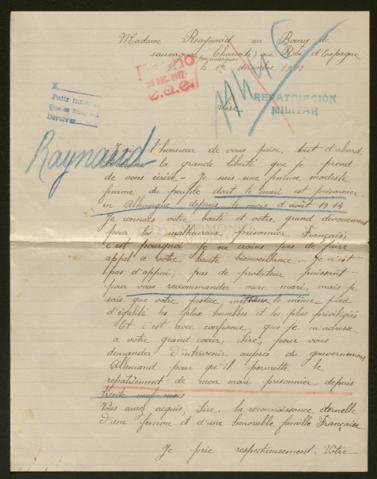 Madame Raynaud au Bourg de
Charente, au Roi d'Espagne
le 1er décembre 1917
Sire
REPATRIACIÓN
MILITAR
Raynaud
J'ai l'honneur de vous prier, tout d'abord,
la grande liberté que je prend
de vous écrire. Je suis une femme modeste
femme du peuple dont le mari est prisonnier
en Allemagne depuis le mois d'août 1914
je connais votre bonté et votre grand dévouement
pour les malheureux prisonniers Français;
c'est pourquoi je ne crains pas de faire
appel à votre haute bienveillance. Je n'ai
pas d'appui; pas de protecteur puissant
pour vous recommander mon mari, mais je
sais que votre justice met sur le même pied
d'égalité les plus humbles et les plus privilégiés
Et c'est avec confiance que je m'adresse
à votre grand cœur, Sire, pour vous
demander d'intervenir auprès du gouvernement
Allemand pour qu'il permette le
repatriement de mon mari prisonnier depuis
trente neuf mois
Vous aurez acquis, Sire, la reconnaissance éternelle
d'une femme et d'une honorable famille Française
Je prie respectueusement Votre